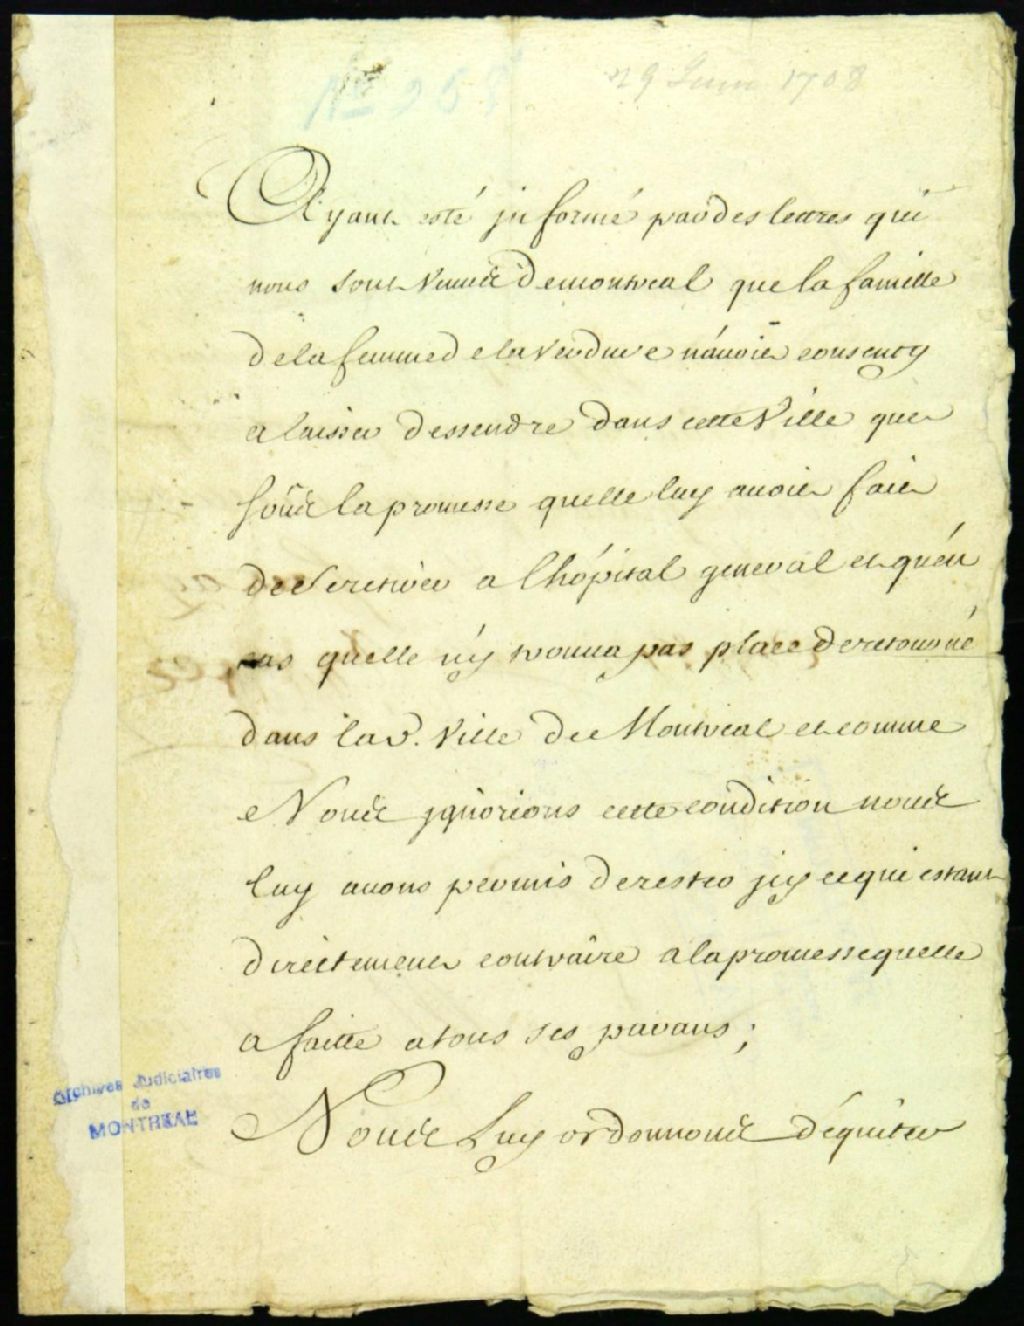 No 258
29 Juin 1708
Ayant esté jnformé par des lettres qui
nous sont venuës de montreal que la famille
de la femme de la Verdure n'auoit consenty
a laisser dessendre dans cette Ville que
sous la promesse quelle luy auoit fait
de se retirer a lhôpital general et qu'en
cas quelle n'y trouua pas place de retourné
dans lad. Ville de Montreal et comme
Nous jgnorions cette condition nous
luy auons permis de rester jcy ce qui estant
directement contraire a la promesse quelle
a faitte a tous ses parans;
Nous Luy ordonnons de quitter
Archives Judiciaires
de
MONTREAL